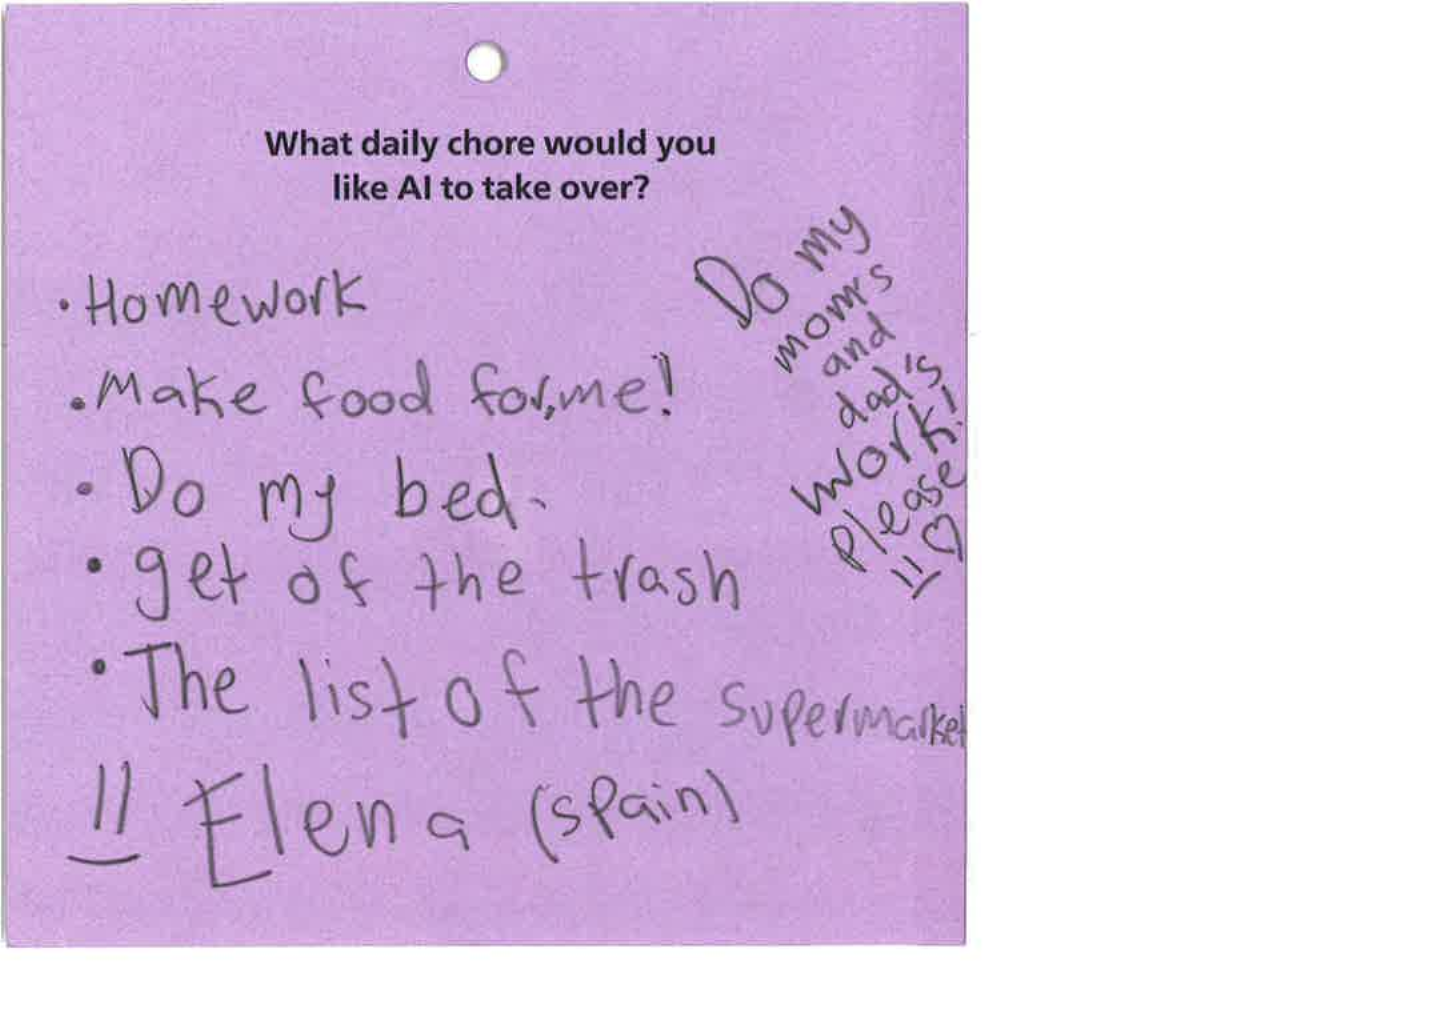 What daily chore would you
like AI to take over?
• Homework
• Make food for me!
• Do my bed.
• get of the trash
• The list of the supermarket
Elena (spain)
Do my
mom's
and
dad's
work!
Please